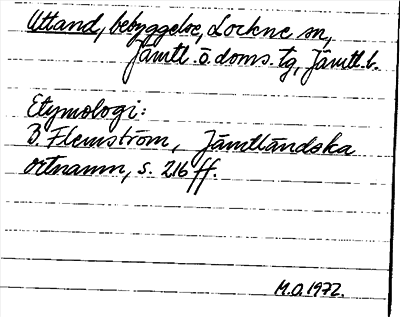 Uttand, bebyggelse, Lockne sn,
Jämtl. ö doms. tg, Jämtl. l.
Etymologi:
B. Flemström, Jämtländska
ortnamn, s. 216 ff.
M.O. 1972.